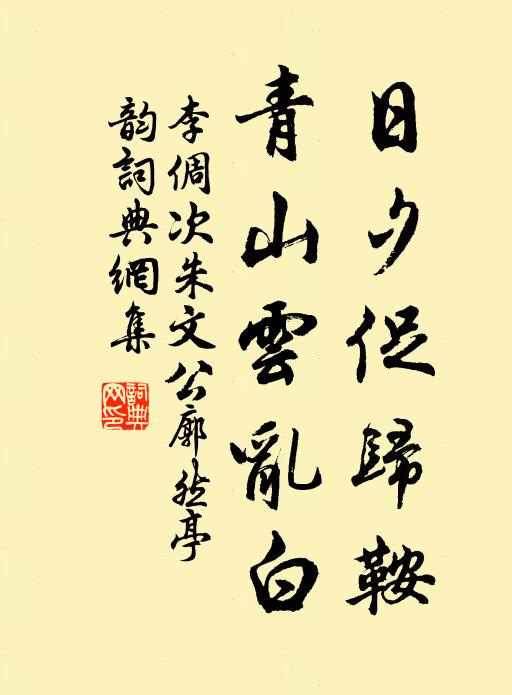 日夕促歸鞍
青山雲亂白
李倜次朱文公廓然亭
韵詞典網集
詞典網印